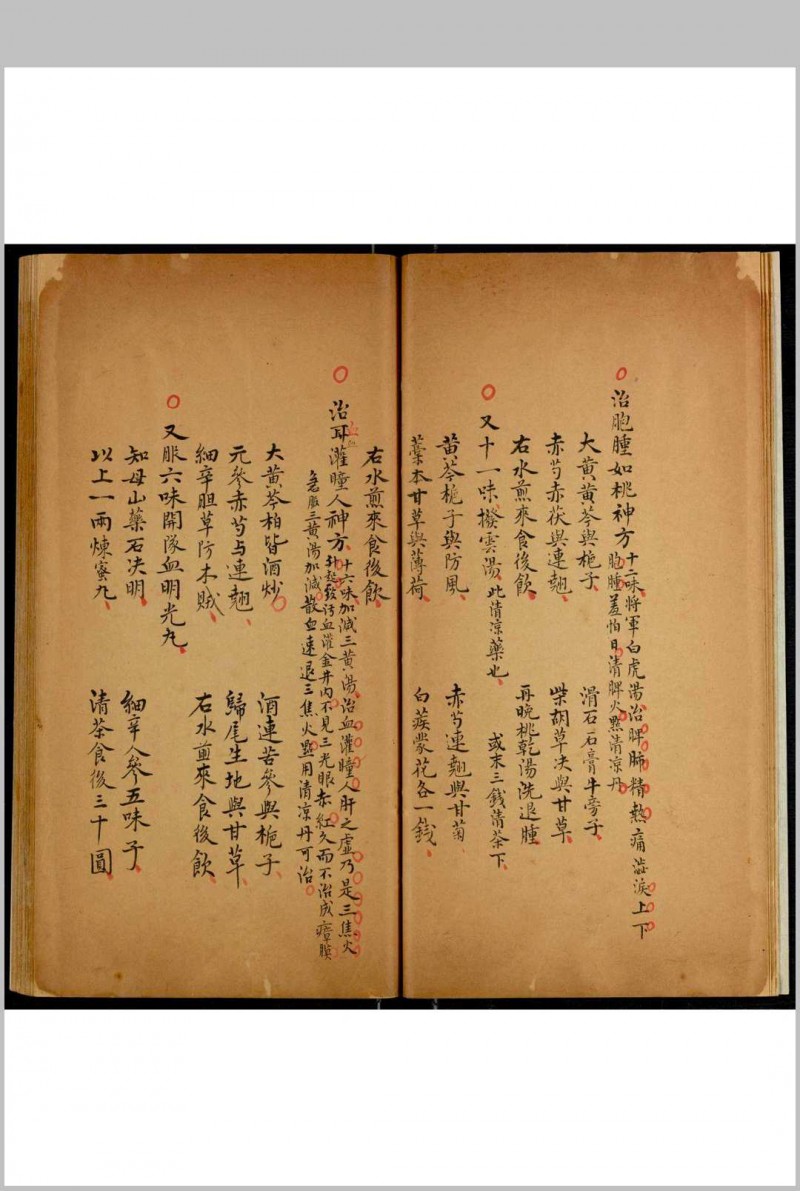 治胞腫如桃神方 十二味將軍白虎湯治脾肺積熱痛澁淚上下
胞腫羞怕日清脾火點清凉丹
大黃黃芩與梔子 滑石石膏牛旁子
赤芍赤茯與連翹 柴胡草决與甘草
右水煎來食後飲 再晚桃乾湯洗退腫
又十一味撥雲湯 此清凉藥也 或末三錢清茶下
黃芩梔子與防風 赤芍連翹與甘菊
藁本甘草與薄荷 白蒺蒙花各一錢
右水煎來食後飲
治血灌瞳人神方 十六味加減三黃湯治血灌瞳人肝之虛乃是三焦火
升起致污血灌金井內不見三光眼赤紅久而不治成瘴膜
急服三黃湯加減散血速退三焦火點用清凉丹可治
大黃芩柏皆酒炒 酒連苦參與梔子
元參赤芍与連翹 歸尾生地與甘草
細辛胆草防木賊 右水煎來食後飲
又服六味開隊血明光九
知母山藥石决明 細辛人參五味子
以上一兩煉蜜九 清茶食後三十圓